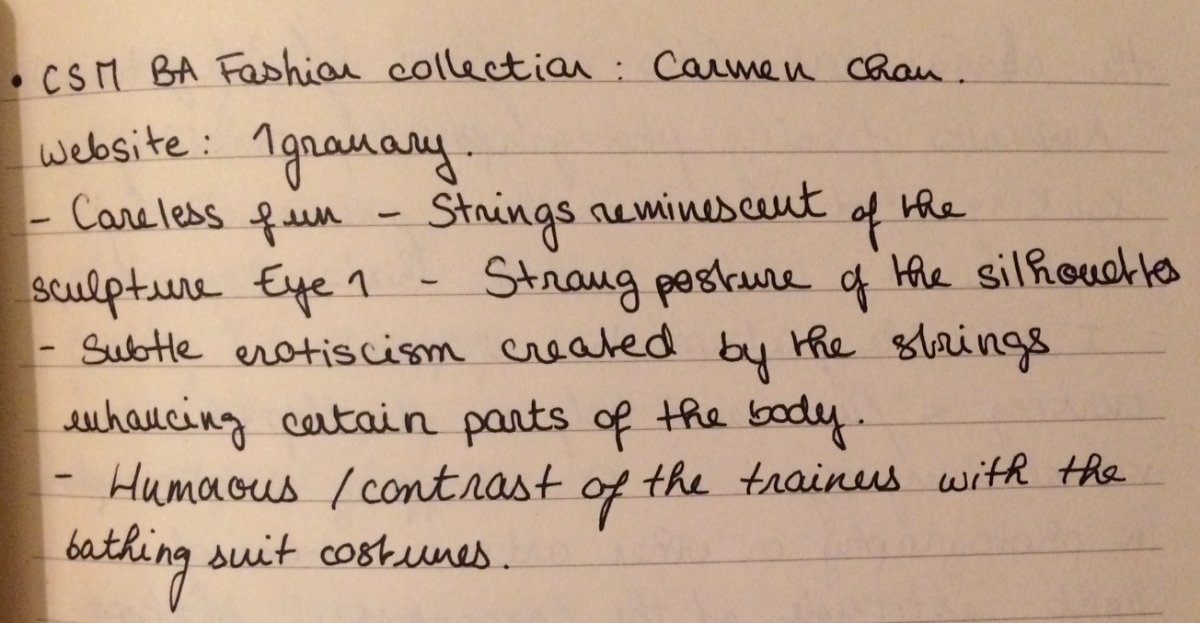 • CSM BA Fashion collection : Carmen Chan.
website : 1granary.
- Careless fun - Strings reminescent of the
sculpture Eye 1 - Strong posture of the silhouettes
- Subtle erotiscism created by the strings
enhancing certain parts of the body.
- Humorous / contrast of the trainers with the
bathing suit costumes.